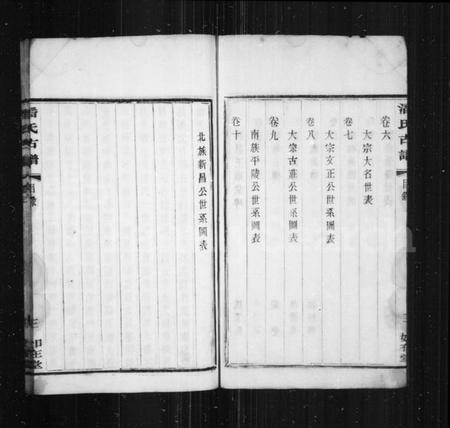 潘氏古譜
目錄
卷六
大宗大名世表
卷七
大宗文正公世系圖表
卷八
大宗古莊公世系圖表
卷九
南族平陵公世系圖表
卷十
北族新昌公世系圖表
潘氏古譜
目錄